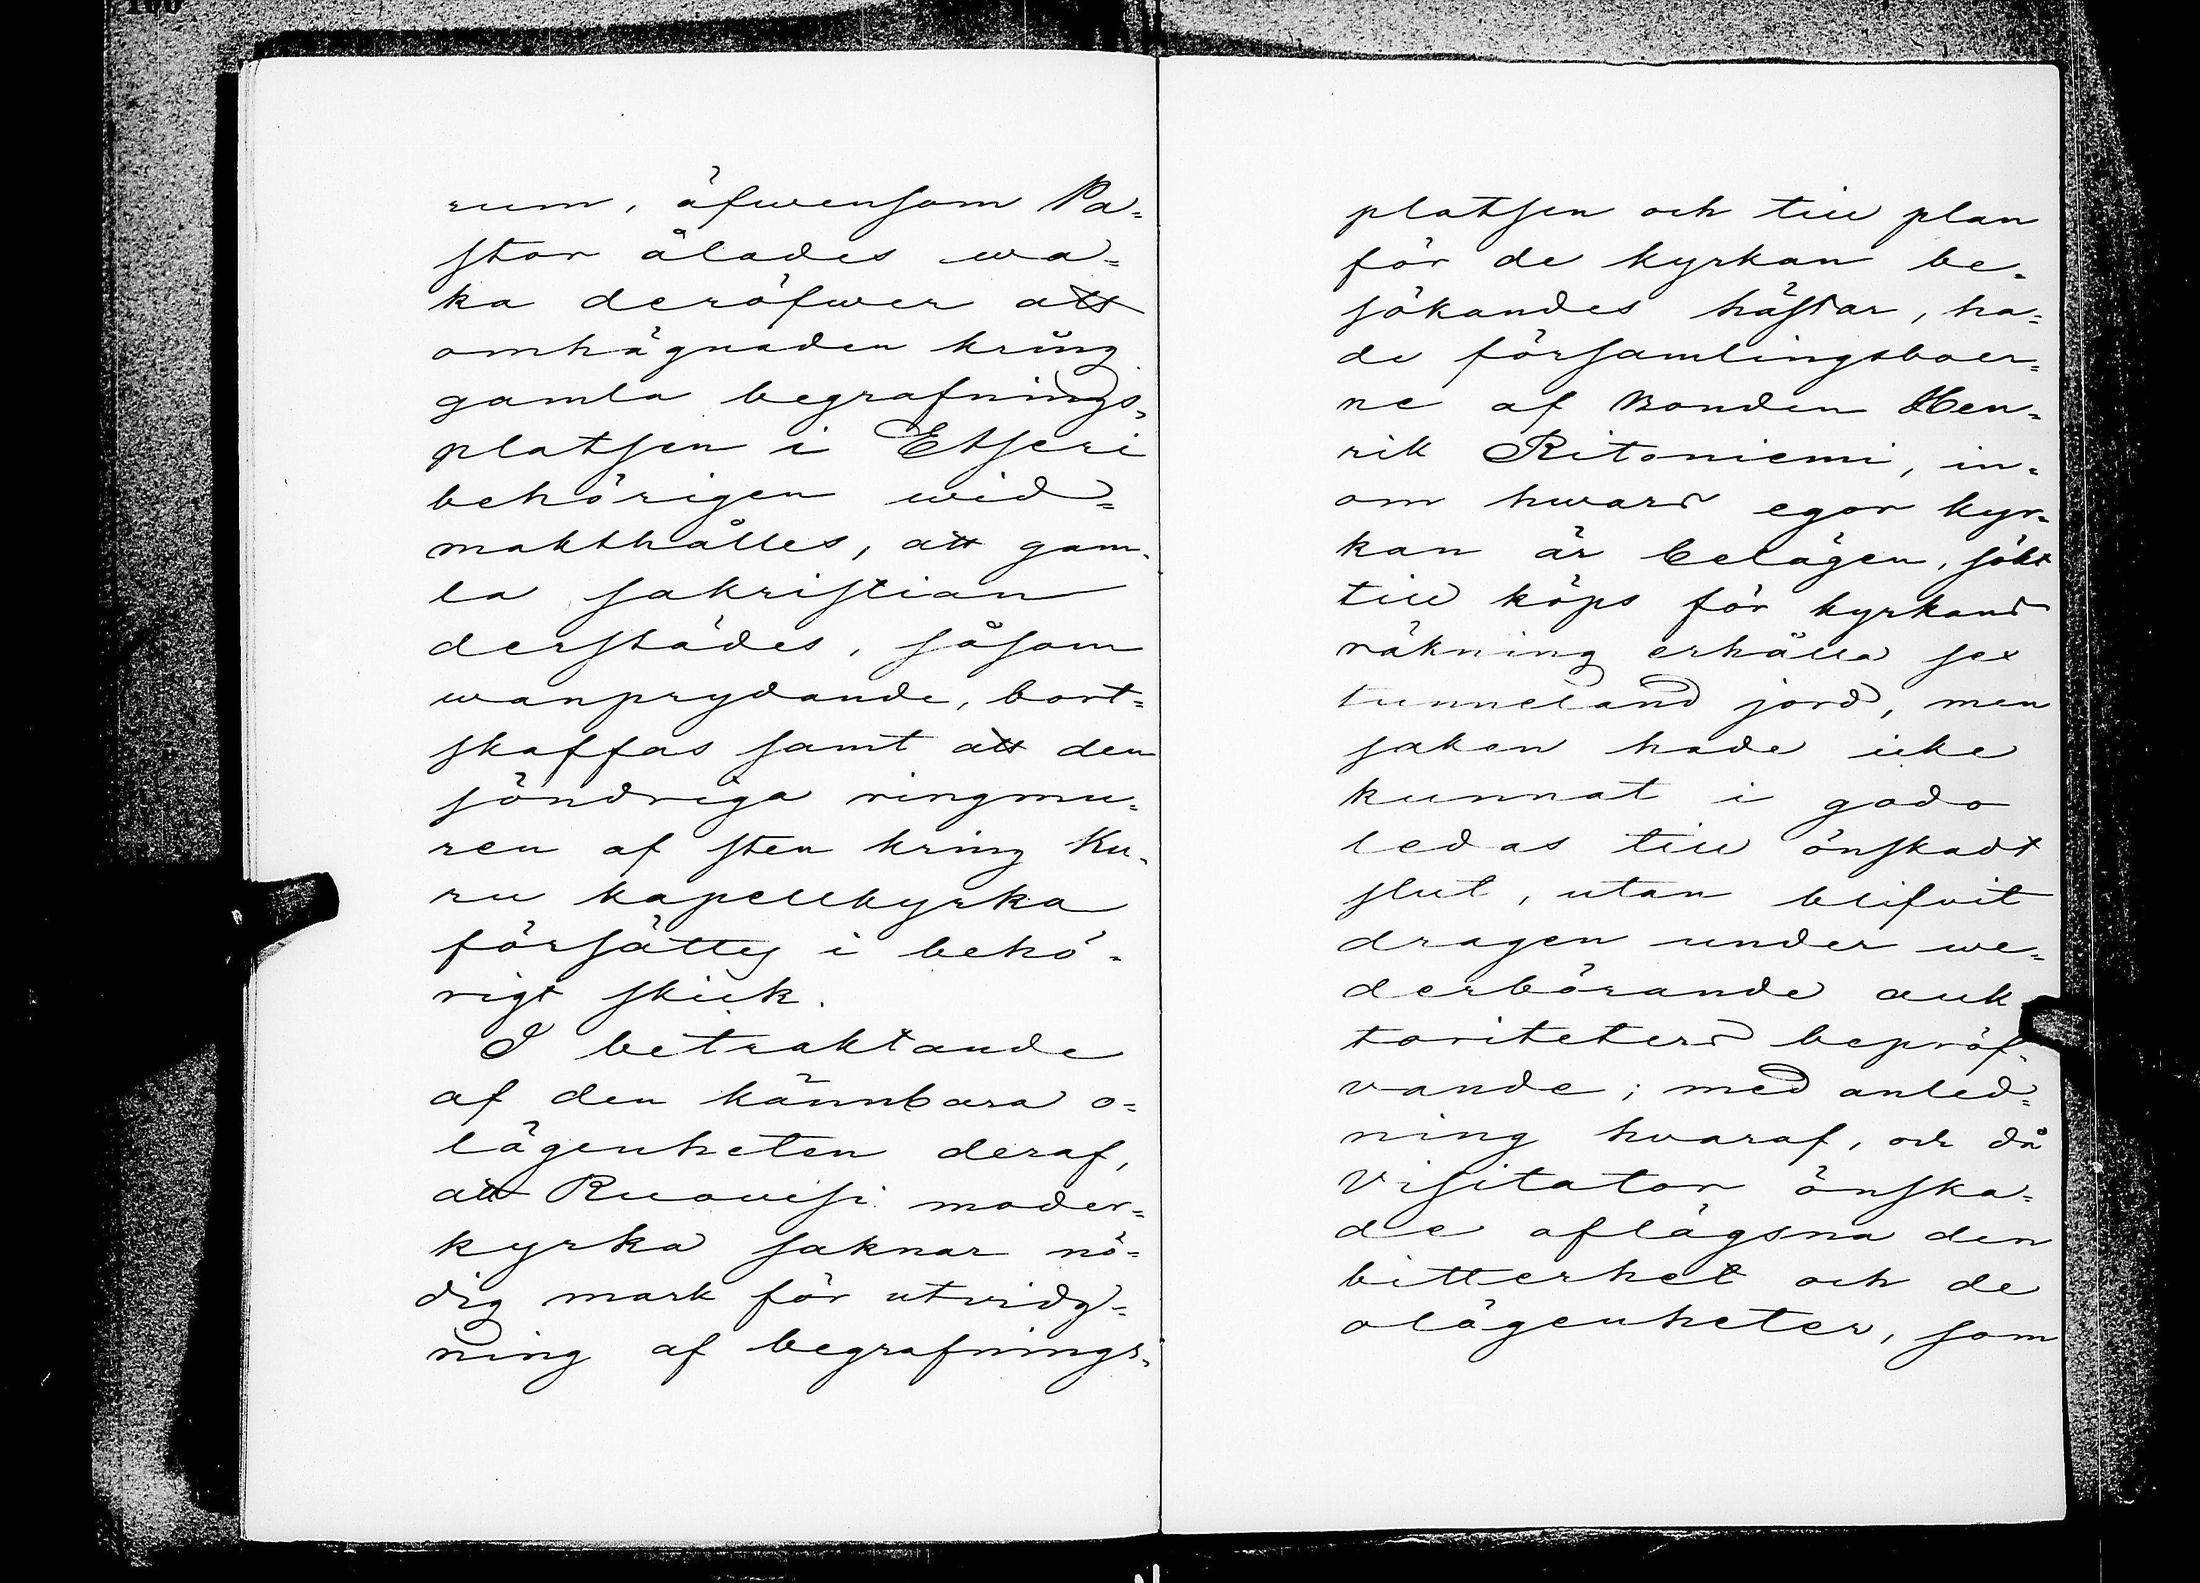 rum, äfwensom Pa-
stor ålades wa-
ka deröfwer att
omhägnaden kring
gamla begrafnings-
platsen i Etseri
behörigen wid-
makthålles, att gam-
la sakristian
derstädes, såsom
wanprydande, bort-
skaffas samt att den
söndriga ringmu-
ren af sten kring Ku-
ru kapellkyrka
försättes i behö-
rigt skick.
I betraktande
af den kännbara o-
lägenheten deraf,
att Ruovesi moder-
kyrka saknar nö-
dig mark för utvidg-
ning af begrafnings-
platsen och till plan
för de kyrkan be-
sökandes hästar, ha-
de församlingsboer-
ne af Bonden Hen-
rik Ritoniemi, in-
om hwars egor kyr-
kan är belägen, sökt
till köps för kyrkans
räkning erhålla sex
tunneland jord, men
saken hade icke
kunnat i godo
ledas till önskadt
slut, utan blifvit
dragen under we-
derbörande auk-
toriteters bepröf-
vande; med anled-
ning hvaraf, och då
Visitator önska-
de aflägsna den
bitterhet och de
olägenheter, som